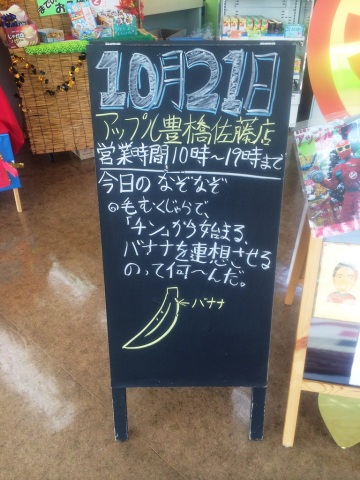 10月21日
アップル豊橋佐藤店
営業時間10時～19時まで
今日のなぞなぞ
◎毛むくじゃらで、
「チン」から始まる、
バナナを連想させる
のって何～んだ。
←バナナ